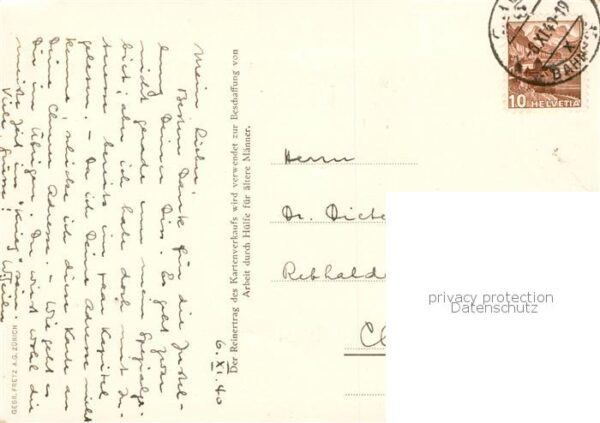 6. XI. 40
Mein Lieber,
Besten Dank für die Zustel-
lung Deiner Diss. Es geht zwar
nicht gerade um mein Spezialge-
biet, aber ich habe doch mit In-
teresse bereits ein paar Kapitel
gelesen. – Da ich Deine Adresse nicht
kenne, schicke ich diese Karte an
Deine Adresse. – Wie geht es
Dir im Übrigen. Du wirst wohl die
meiste Zeit im "Krieg" sein.
Viele Grüsse!
Der Reinertrag des Kartenverkaufs wird verwendet zur Beschaffung von
Arbeit durch Hülfe für ältere Männer.
GEBR. FRETZ A.G. ZÜRICH
Herrn
Dr. Diete
Rebhald
10 HELVETIA
XI.40-19
BAHN
privacy protection
Datenschutz